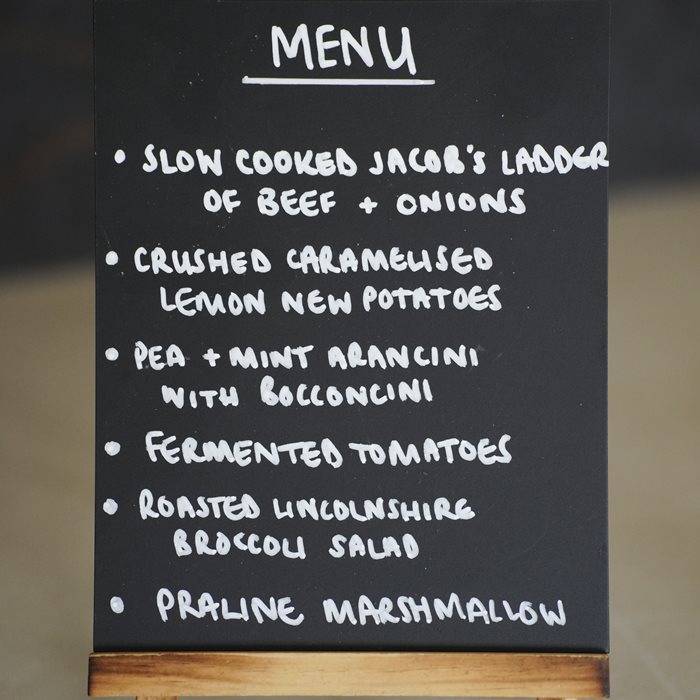 MENU
• SLOW COOKED JACOB'S LADDER
OF BEEF + ONIONS
• CRUSHED CARAMELISED
LEMON NEW POTATOES
• PEA + MINT ARANCINI
WITH BOCCONCINI
• FERMENTED TOMATOES
• ROASTED LINCOLNSHIRE
BROCCOLI SALAD
• PRALINE MARSHMALLOW